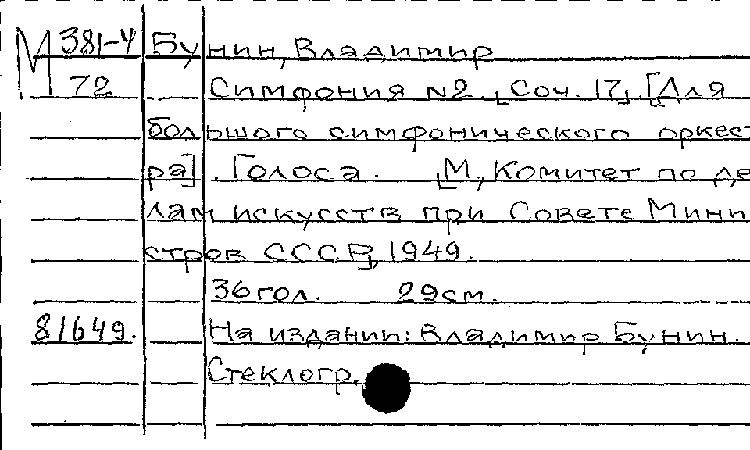 М 381-4 Бунин, Владимир
72 Симфония №2. [Соч. 17]. [Для
большого симфонического оркест
ра]. Голоса. [М., Комитет по де
лам искусств при Совете Мини
стров СССР], 1949.
36 гол. 29 см.
81649. На издании: Владимир Бунин.
Стеклогр.